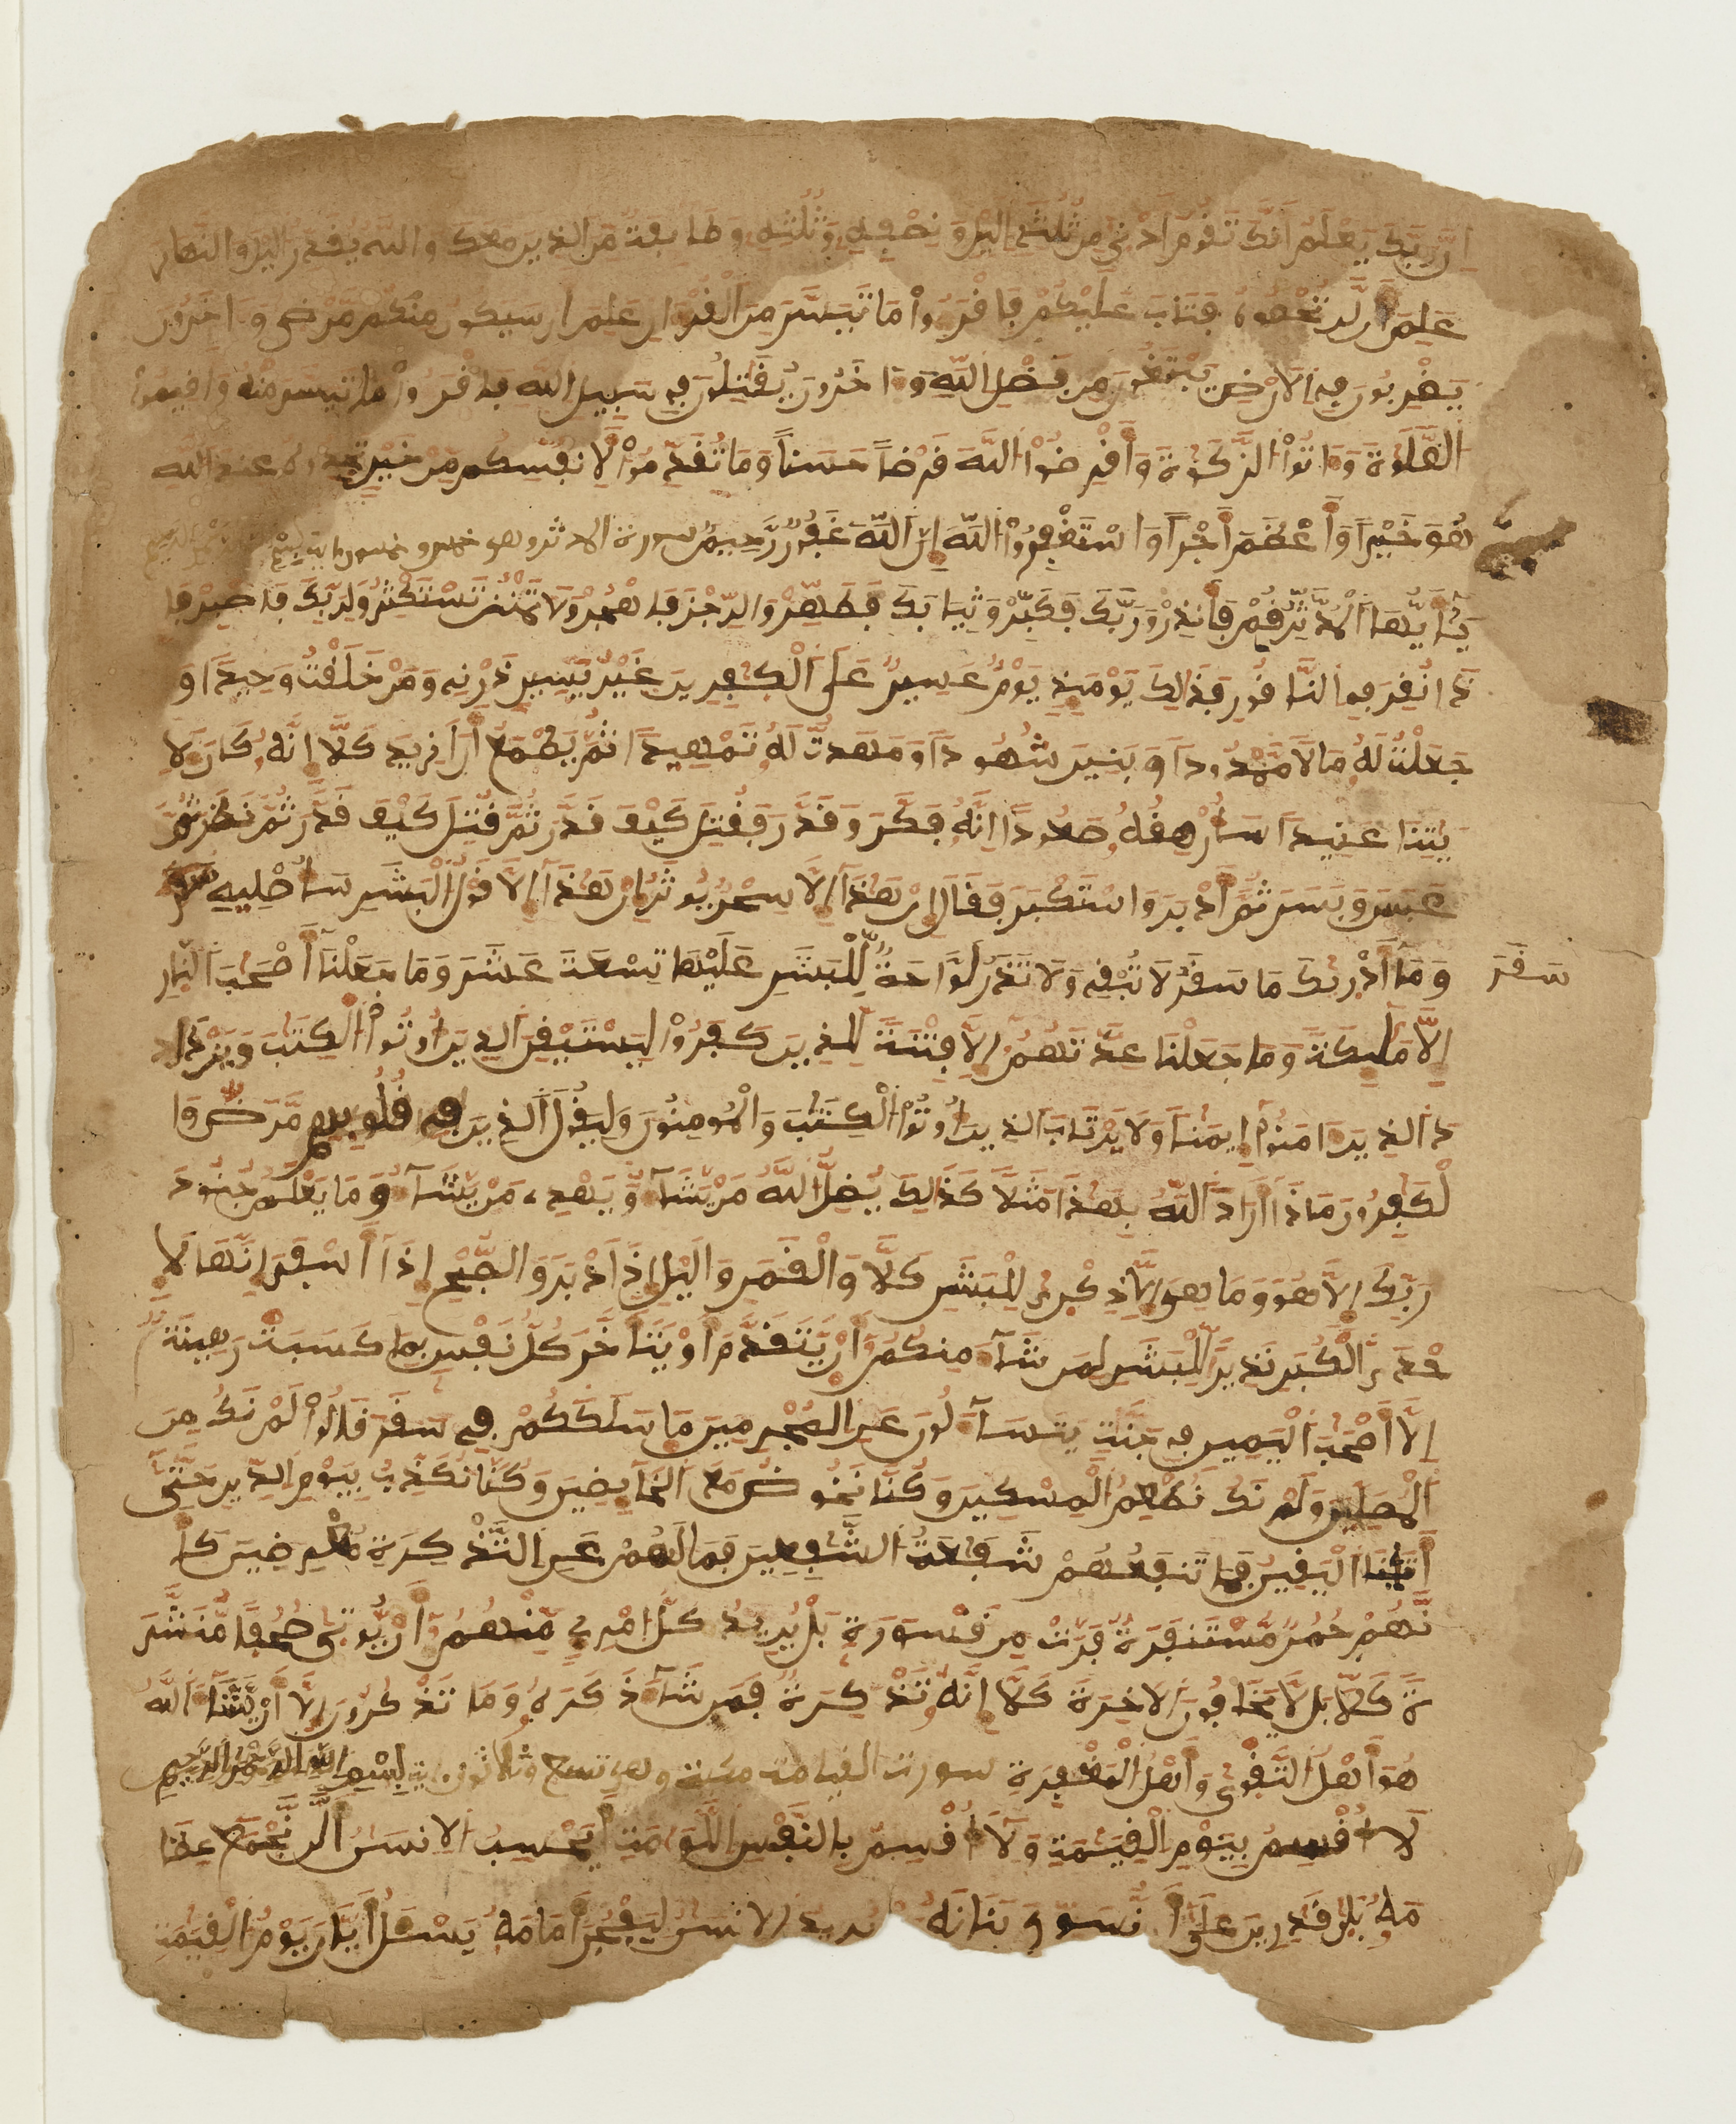 إن ربك يعلم أنك تقوم أدنى من ثلثي اليل ونصفه وثلثه وطايفة من الذين معك والله يقدر اليل والنهار
علم أن لن تحصوه فتاب عليكم فاقرءوا ما تيسر من القرءان علم أن سيكون منكم مرضى وءاخرون
يضربون في الارض يبتغون من فضل الله وءاخرون يقتلون في سبيل الله فاقرءوا ما تيسر منه وأقيموا
الصلوة وءاتوا الزكوة وأقرضوا الله قرضا حسنا وما تقدموا لأنفسكم من خير تجدوه عند الله
هو خيرا وأعظم أجرا واستغفروا الله إن الله غفور رحيم سورة المدثر وهي خمس وخمسون اية
يأيها المدثر قم فأنذر وربك فكبر وثيابك فطهر والرجز فاهجر ولا تمنن تستكثر ولربك فاصبر فإ
ذا نقر في الناقور فذلك يوميذ يوم عسير على الكفرين غير يسير ذرني ومن خلقت وحيدا و
جعلت له مالا ممدودا وبنين شهودا ومهدت له تمهيدا ثم يطمع أن أزيد كلا إنه كان لأ
يتنا عنيدا سأرهقه صعودا إنه فكر وقدر فقتل كيف قدر ثم قتل كيف قدر ثم نظر ثم
عبس وبسر ثم أدبر واستكبر فقال إن هذا إلا سحر يوثر إن هذا إلا قول البشر سأصليه سقر
سقر
وما أدريك ما سقر لا تبقي ولا تذر لواحة للبشر عليها تسعة عشر وما جعلنا أصحب النار
إلا مليكة وما جعلنا عدتهم إلا فتنة للذين كفروا ليستيقن الذين أوتوا الكتب ويزدا
د الذين ءامنوا إيمنا ولا يرتاب الذين أوتوا الكتب والمومنون وليقول الذين في قلوبهم مرض وا
لكفرون ماذا أراد الله بهذا مثلا كذلك يضل الله من يشآء ويهدي من يشآء وما يعلم جنود
ربك إلا هو وما هي إلا ذكرى للبشر كلا والقمر واليل إذ أدبر والصبح إذا أسفر إنها لإ
حدى الكبر نذيرا للبشر لمن شآء منكم أن يتقدم أو يتأخر كل نفس بما كسبت رهينة
إلا أصحب اليمين في جنت يتسآءلون عن المجرمين ما سلككم في سقر قالوا لم نك من
المصلين ولم نك نطعم المسكين وكنا نخوض مع الخآيضين وكنا نكذب بيوم الدين حتى
أتينا اليقين فما تنفعهم شفعة الشفعين فما لهم عن التذكرة معرضين كأ
نهم حمر مستنفرة فرت من قسورة بل يريد كل امرئ منهم أن يوتى صحفا منشر
ة كلا بل لا يخافون الاخرة كلا إنه تذكرة فمن شآء ذكره وما تذكرون إلا أن يشآء الله
هو أهل التقوى وأهل المغفرة سورت القيامة مكية وهي تسع وثلاثون اية بسم الله الرحمن الرحيم
لا أقسم بيوم القيمة ولا أقسم بالنفس اللوامة أيحسب الانسن ألن نجمع عظا
مه بلى قدرين على أن نسوي بنانه بل يريد الانسن ليفجر أمامه يسئل أيان يوم القيمة